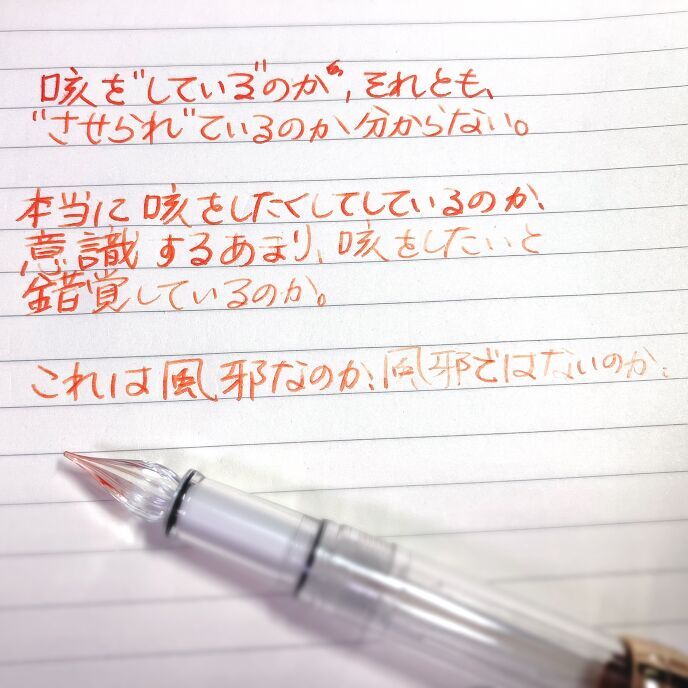 咳を"している"のか、それとも、
"させられ"ているのか分からない。
本当に咳をしたくてしているのか、
意識するあまり、咳をしたいと
錯覚しているのか。
これは風邪なのか、風邪ではないのか。